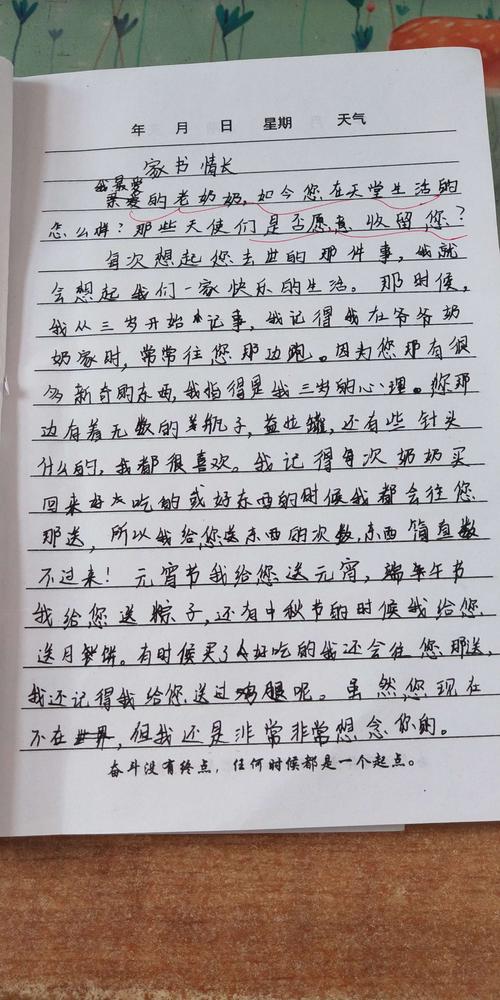 年 月 日 星期 天气
家书情长
我最爱
亲爱的老奶奶,如今您在天堂生活的
怎么样?那些天使们是否愿意收留您?
每次想起您去世的那件事,我就
会想起我们一家快乐的生活。那时候,
我从三岁开始记事,我记得我在爷爷奶
奶家时,常常往您那边跑。因为您那有很
多新奇的东西,我指得是我三岁的心理。您那
边有着无数的羊瓶子,益母罐,还有些针头
什么的,我都很喜欢。我记得每次奶奶买
回来好点吃的或好东西的时候我都会往您
那送,所以我给您送东西的次数,东西简直数
不过来!元宵节我给您送元宵,端午节
我给您送粽子,还有中秋节的时候我给您
送月饼。有时候买了好吃的我还会往您那送,
我还记得我给您送过鸡腿呢。虽然您现在
不在世界,但我还是非常非常想念你的。
奋斗没有终点,任何时候都是一个起点。